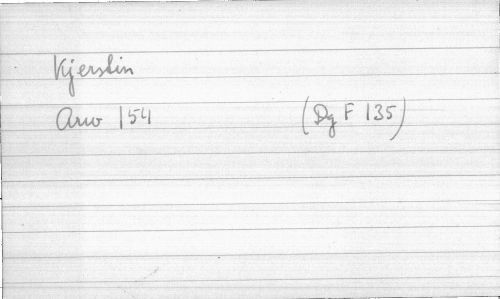 Kjerstin
Arw 154 (Dg F 135)